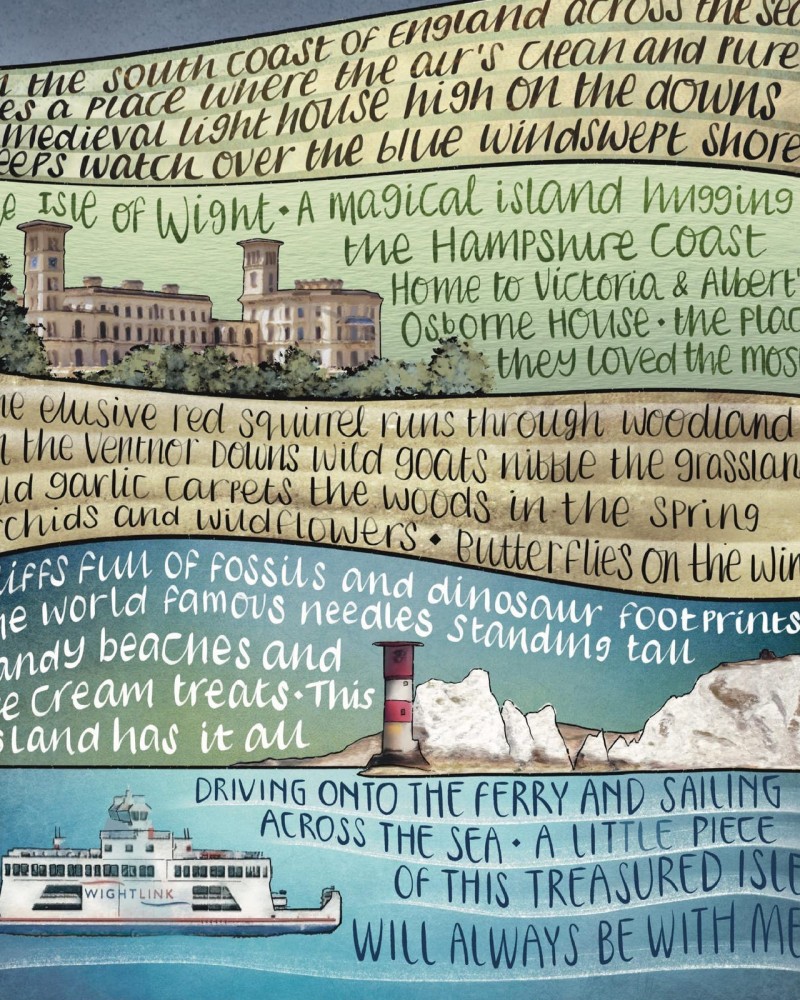 the south coast of England across the sea
a place where the air's clean and pure
medieval lighthouse high on the downs
watch over the blue windswept shore
Isle of Wight • A magical island hugging
the Hampshire Coast
Home to Victoria & Albert'
Osborne House • the
they loved the
elusive red squirrel runs through woodland
the Ventnor Downs wild goats nibble the
garlic carpets the woods in the spring
and wildflowers • butterflies on the
full of fossils and dinosaur footprints
world famous needles standing tall
beaches and
cream treats • This
has it all
DRIVING ONTO THE FERRY AND SAILING
ACROSS THE SEA • A LITTLE PIECE
OF THIS TREASURED ISLE
WIGHTLINK
WILL ALWAYS BE WITH ME